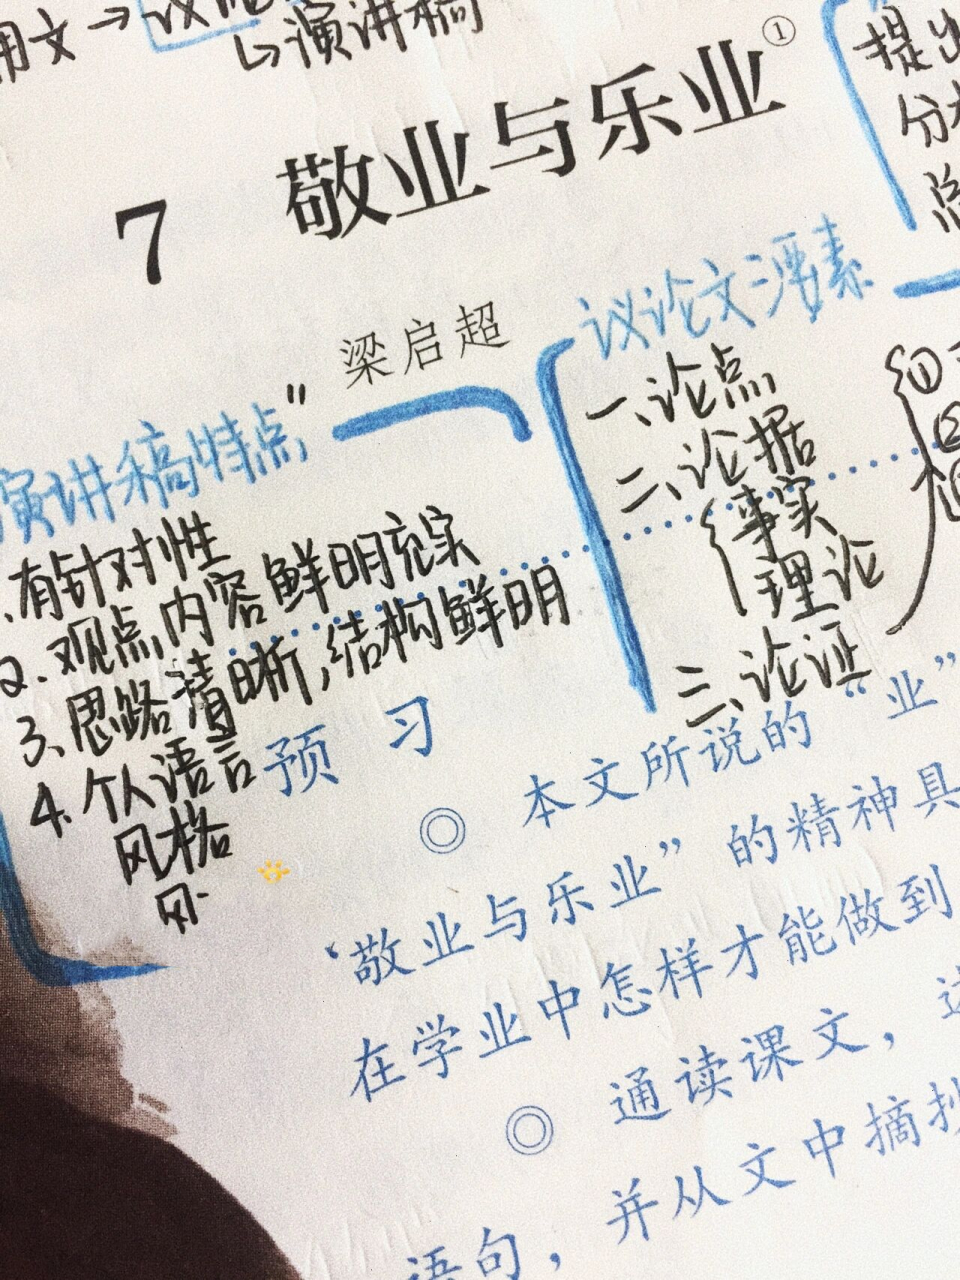 用文→议论
↳演讲稿
①
7 敬业与乐业
梁启超
提出
分
总
演讲稿特点"
有针对性
2.观点,内容鲜明充实
3、思路清晰,结构鲜明
4.个人语言
风格
风·
议论文要素
一、论点
二、论据
事实
理论
三、论证
①
②
预习
◎ 本文所说的“业”
“敬业与乐业”的精神具
在学业中怎样才能做到
◎ 通读课文,这
并从文中摘抄
语句,